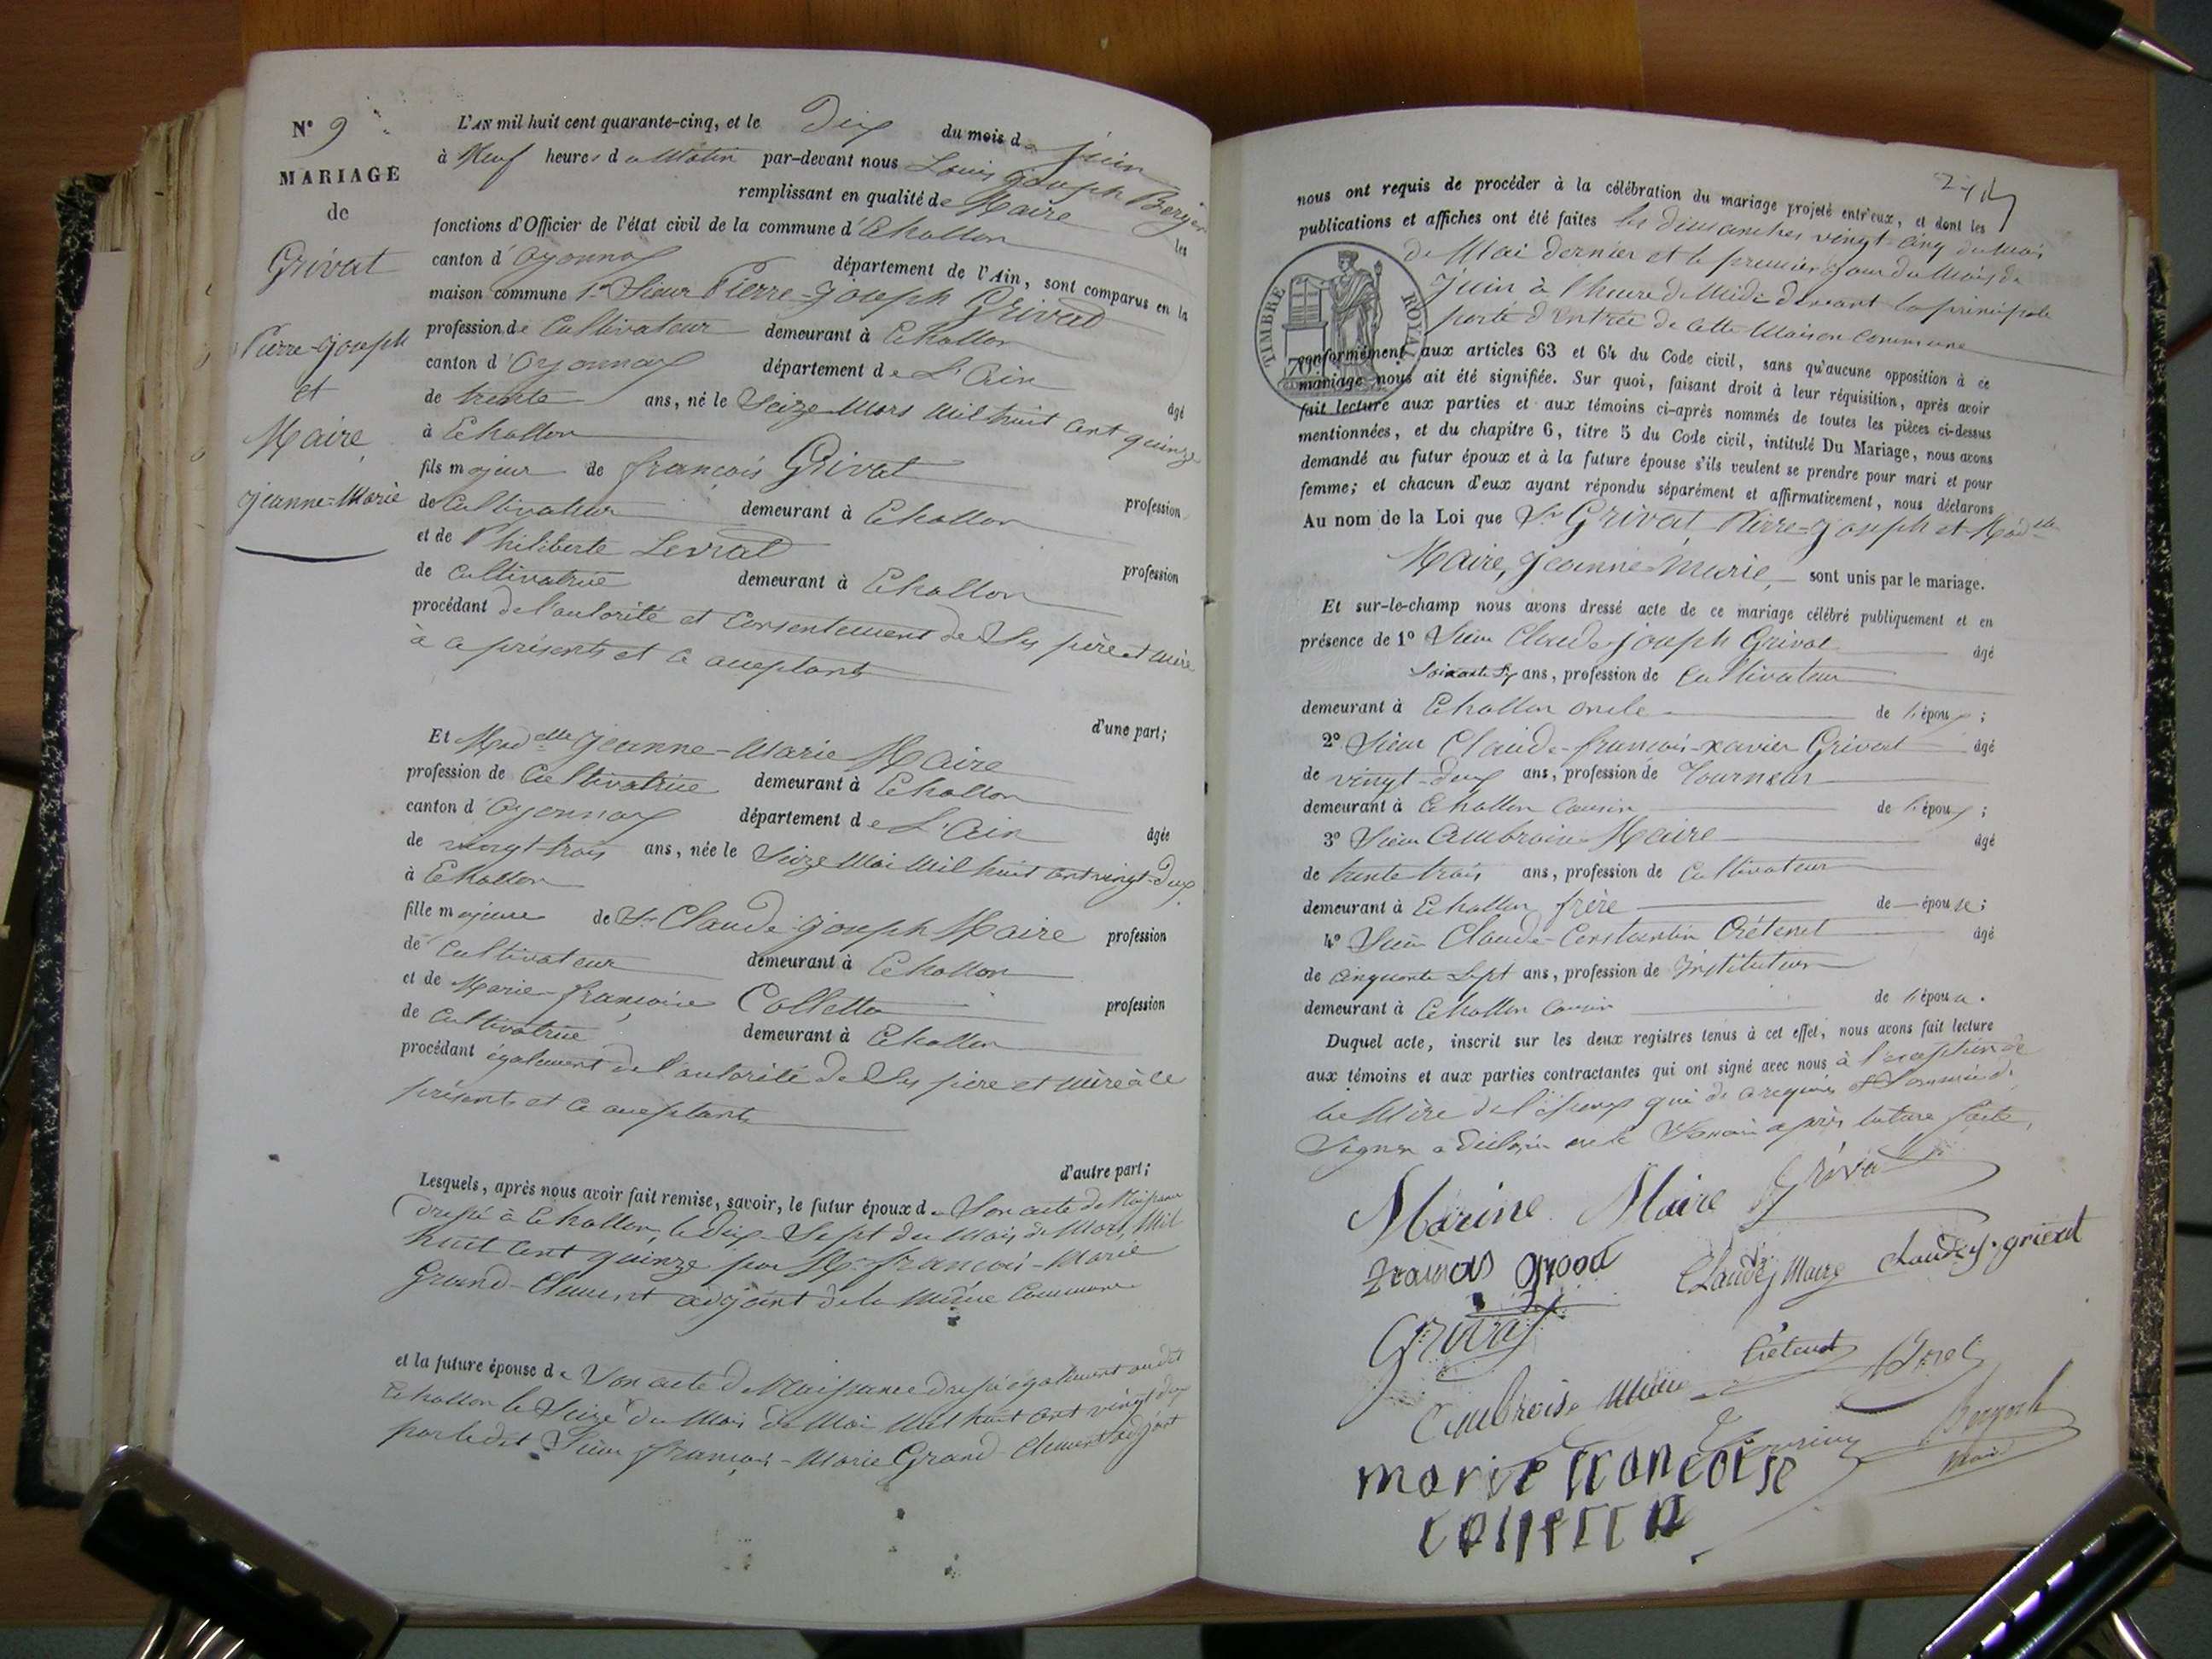 N° 9
MARIAGE
de
Grivat
Pierre-Joseph
et
Maire,
Jeanne-Marie
L'AN mil huit cent quarante-cinq, et le Dix du mois de Juin
à Neuf heures du Matin par-devant nous Louis Joseph Berger
remplissant en qualité de Maire les
fonctions d'Officier de l'état civil de la commune d'Echallon
canton d'Oyonnax département de l'Ain, sont comparus en la
maison commune 1° Sieur Pierre-Joseph Grivat
profession de Cultivateur demeurant à Echallon
canton d'Oyonnax département de L'Ain
âgé
de trente ans, né le Seize Mars Mil huit cent quinze
à Echallon
fils majeur de françois Grivat profession
de Cultivateur demeurant à Echallon
et de Philiberte Levrat profession
de Cultivatrice demeurant à Echallon
procédant de l'autorité et Consentement de Ses père et mère
à ce présents et ce acceptants
d'une part;
Et Mad.elle Jeanne-Marie Maire
profession de Cultivatrice demeurant à Echallon
canton d'Oyonnax département de L'Ain âgée
de vingt-trois ans, née le Seize Mai Mil huit cent vingt-deux
à Echallon
fille majeure de Sr Claude-Joseph Maire profession
de Cultivateur demeurant à Echallon
et de Marie-françoise Colletta profession
de Cultivatrice demeurant à Echallon
procédant également de l'autorité de Ses père et mère à ce
présents et ce acceptants
d'autre part;
Lesquels, après nous avoir fait remise, savoir, le futur époux de Son acte de Naissance
dressé à Echallon, le dix-Sept du Mois de Mars, Mil
huit cent quinze par Mr françois-Marie
Grand-Clément adjoint de la Même Commune
et la future épouse de Son acte de Naissance dressé également audit
Echallon le Seize du Mois de Mai Mil huit cent vingt deux
par le dit Sieur françois-Marie Grand-Clément adjoint
nous ont requis de procéder à la célébration du mariage projeté entr'eux, et dont les
publications et affiches ont été faites les dimanches vingt-cinq du Mois
de Mai dernier et le premier jour du Mois de
Juin à l'heure de Midi devant la principale
porte d'entrée de cette Maison commune
TIMBRE ROYAL
conformément aux articles 63 et 64 du Code civil, sans qu'aucune opposition à ce
mariage nous ait été signifiée. Sur quoi, faisant droit à leur réquisition, après avoir
fait lecture aux parties et aux témoins ci-après nommés de toutes les pièces ci-dessus
mentionnées, et du chapitre 6, titre 5 du Code civil, intitulé Du Mariage, nous avons
demandé au futur époux et à la future épouse s'ils veulent se prendre pour mari et pour
femme; et chacun d'eux ayant répondu séparément et affirmativement, nous déclarons
Au nom de la Loi que Sr Grivat, Pierre-Joseph et Madelle
Maire, Jeanne Marie, sont unis par le mariage.
Et sur-le-champ nous avons dressé acte de ce mariage célébré publiquement et en
présence de 1° Sieur Claude Joseph Grivat âgé
ans, profession de Cultivateur
demeurant à Echallon oncle de l'époux;
2° Sieur Claude-françois-xavier Grivat âgé
de vingt-deux ans, profession de Tourneur
demeurant à Echallon Cousin de l'époux;
3° Sieur Ambroise Maire âgé
de trente trois ans, profession de Cultivateur
demeurant à Echallon frère de épouse;
4° Sieur Claude-Constantin Crétenet âgé
de cinquante Sept ans, profession de Instituteur
demeurant à Echallon Cousin de l'épou
Duquel acte, inscrit sur les deux registres tenus à cet effet, nous avons fait lecture
aux témoins et aux parties contractantes qui ont signé avec nous à l'exception de
la Mère de l'époux qui de ce requise et Sommée de
Signer a déclaré ne le Savoir après lecture faite,
Marine Maire Grivat
françois grivat Claude J Maire Claude J. grivat
Grivat
Crétenet
Ambroise Maire
Maire
marie francoise
colletta